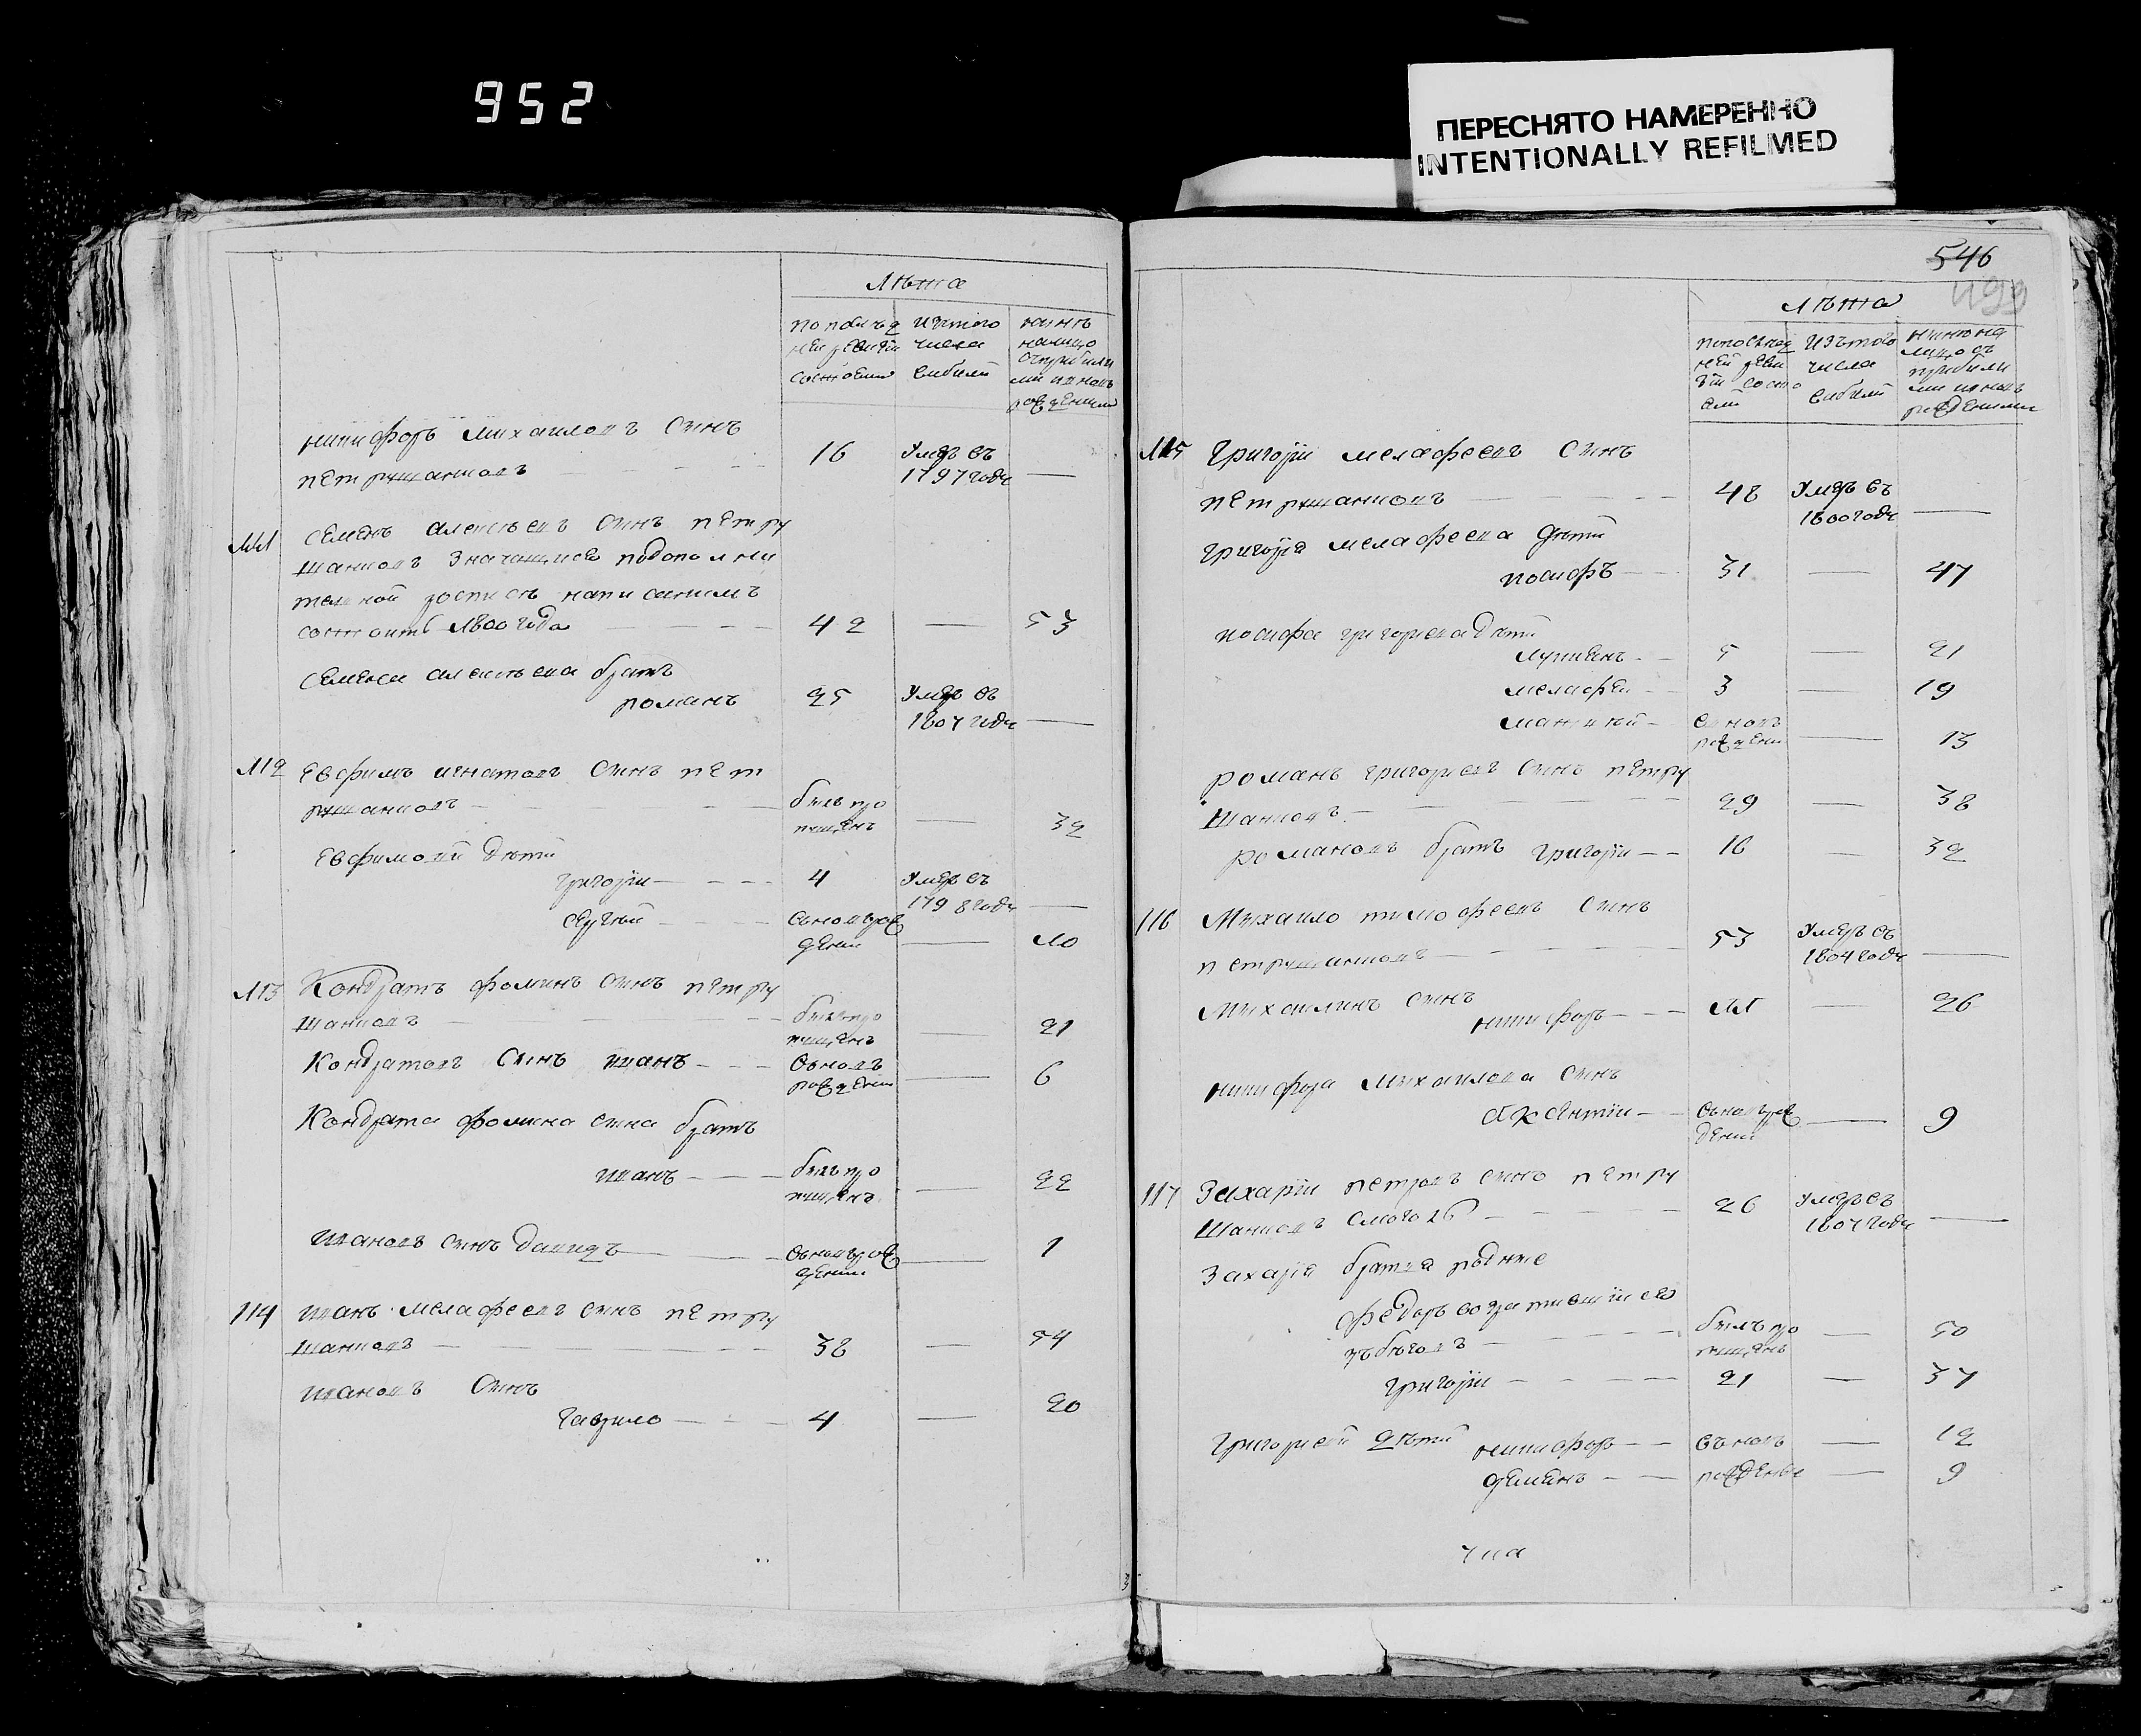 952
ПЕРЕСНЯТО НАМЕРЕННО
INTENTIONALLY REFILMED
Лѣта
по последней ревизии состояло
изтого числа выбыли
нынѣ налицо
съприбылыми и вновь рожденными
никифоръ михаиловъ сынъ
петрушанковъ
16
Умеръ въ 1797 годе
—
111 семенъ алексѣевъ сынъ петру
шанковъ значащиеся подополни
тельной
написаннымъ
состоитъ 1800 года
42
—
53
семена алексѣева братъ
романъ
25
Умеръ въ 1807 годе
—
112 Евфимъ игнатовъ сынъ пет
рушанковъ
былъ пропущенъ
—
32
Евфимовы дѣти
григорїи
4
Умеръ въ 1798 годе
—
сергѣй
вновь рожденъ
—
10
113 Кондратъ фоминъ сынъ петру
шанковъ
былъ пропущенъ
—
21
Кондратовъ сынъ иванъ
вновь рожденъ
—
6
Кондрата фомина сына братъ
иванъ
былъ пропущенъ
—
22
ивановъ сынъ давидъ
вновь рожденъ
—
1
114 иванъ мелафеевъ сынъ петру
шанковъ
38
—
54
ивановъ сынъ
гаврило
4
—
20
546
499
лѣта
по последней ревизїи состояло
изътого числа выбыли
нынѣ на лицо съ прибылыми и вновь рожденными
115 Григорїи мелафеевъ сынъ
петрушанковъ
48
Умеръ въ 1800 годе
—
григорїя мелафеева дѣти
иосифъ
31
—
47
иосифа григорьева дѣти
лукиянъ
5
—
21
мелафеи
3
—
19
вновь рожденъ
—
13
романъ григорьевъ сынъ петру
шанковъ
29
—
38
романовъ братъ григорїи
16
—
32
116 Михаило тимофеевъ сынъ
петрушанковъ
53
Умеръ въ 1804 годе
—
Михаилинъ сынъ
никифоръ
11
—
26
никифора михаилова сынъ
авксентїи
вновь рожденъ
—
9
117 Захарїи петровъ сынъ петру
шанковъ
26
Умеръ въ 1807 годе
—
Захарїя братья родные
федоръ возвратившїися
изъ бѣговъ
былъ пропущенъ
—
50
григорїи
21
—
37
Григорьевы дѣти никифоръ
вновь
—
12
демянъ
рожденые
—
9